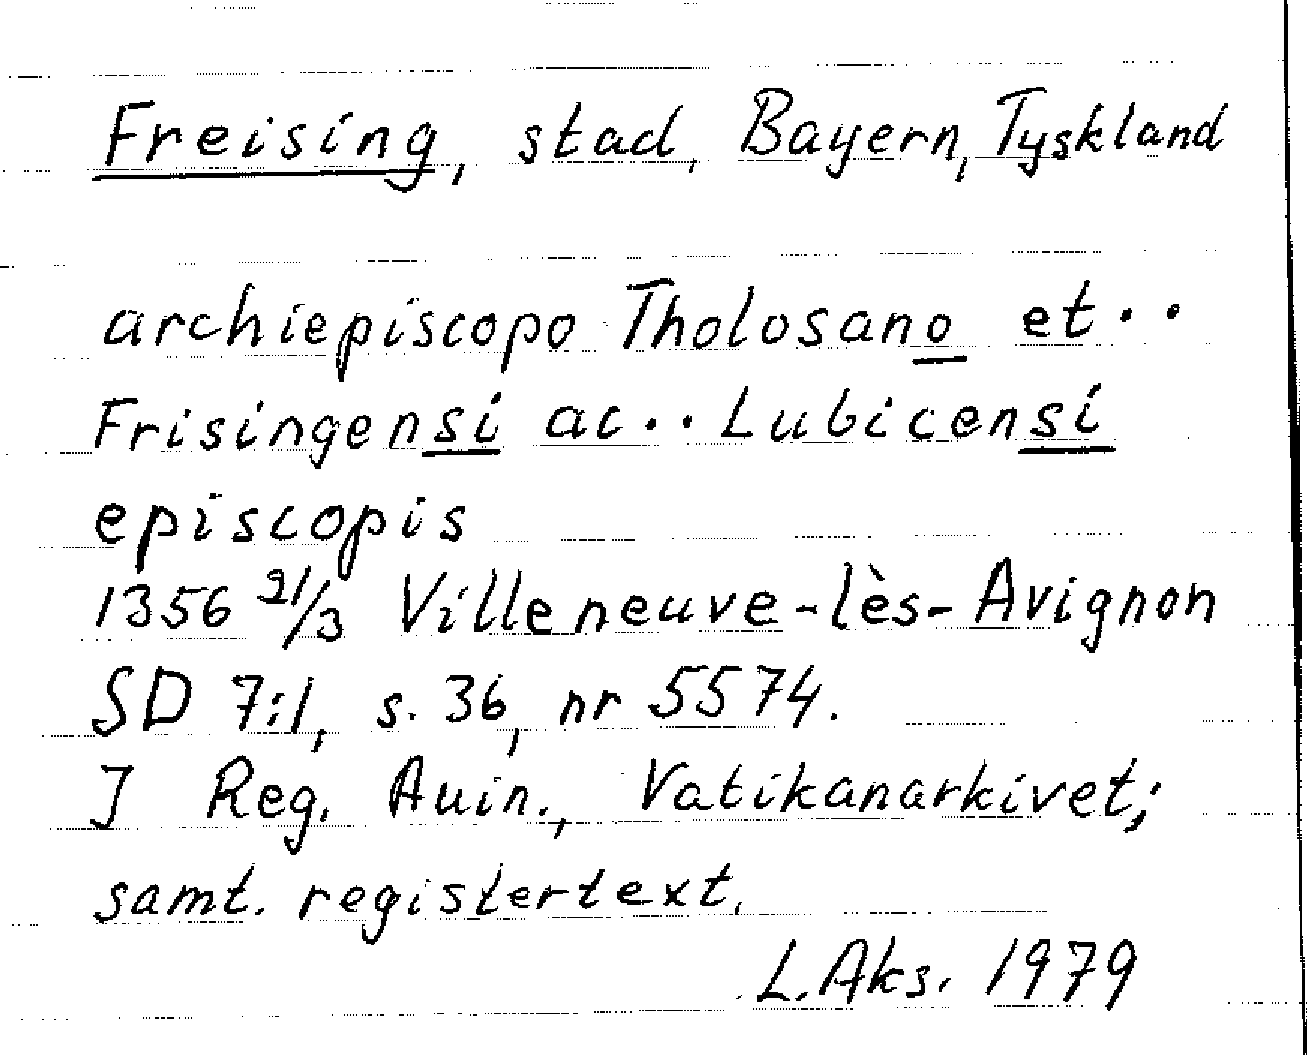 Freising, stad, Bayern, Tyskland
archiepiscopo Tholosano et··
Frisingensi ac··Lubicensi
episcopis
1356 21/3 Villeneuve-lès-Avignon
SD 7:1, s. 36, nr 5574.
I Reg. Auin., Vatikanarkivet;
samt. registertext.
L.Aks. 1979